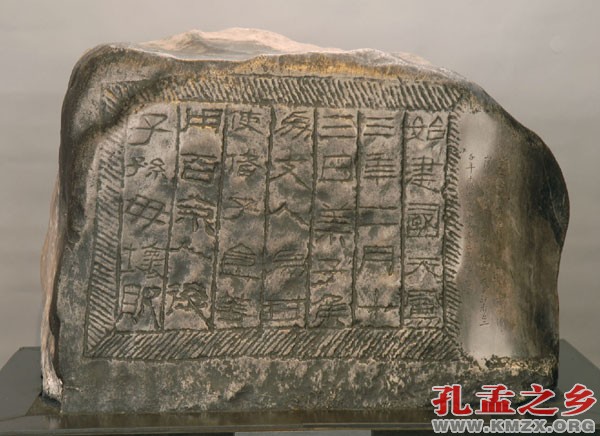 始建國天鳳
三年二月十
三日萊子侯
為支人為封
使偕子食等
用百余人後
子孫毋壞敗
孔孟之乡
WWW.KMZX.ORG